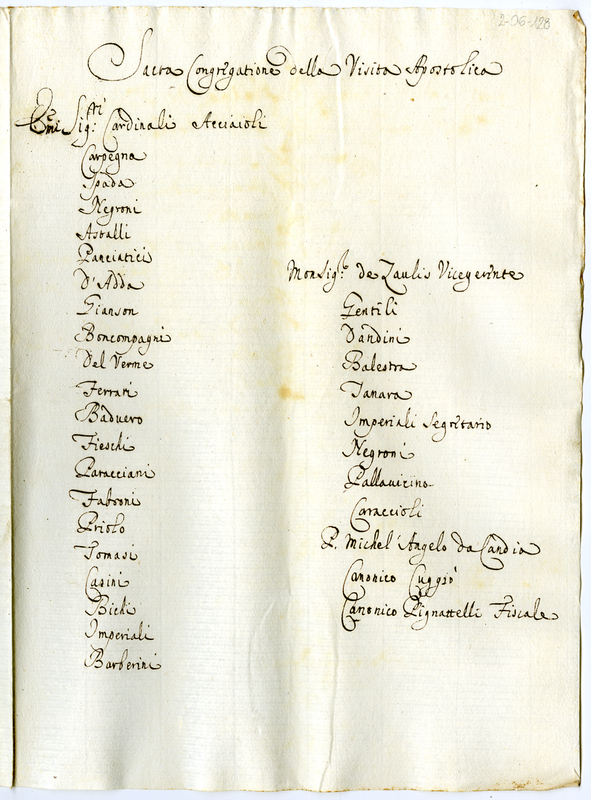 2-06-128
Sacra Congregatione della Visita Apostolica
E.mi Sig:ri Cardinali Acciaioli
Carpegna
Spada
Negroni
Astalli
Panciatici
D'Adda
Gianson
Boncompagni
Del Verme
Ferrari
Baduero
Fieschi
Paracciani
Fabroni
Priolo
Tomasi
Casini
Bichi
Imperiali
Barberini
Monsig.r de Zaulis Vicegerente
Gentili
Dandini
Balestra
Tanara
Imperiali Segretario
Negroni
Pallavicino
Caraccioli
P. Michel'Angelo da Candia
Canonico Cuggiò
Canonico Pignattelli Fiscale